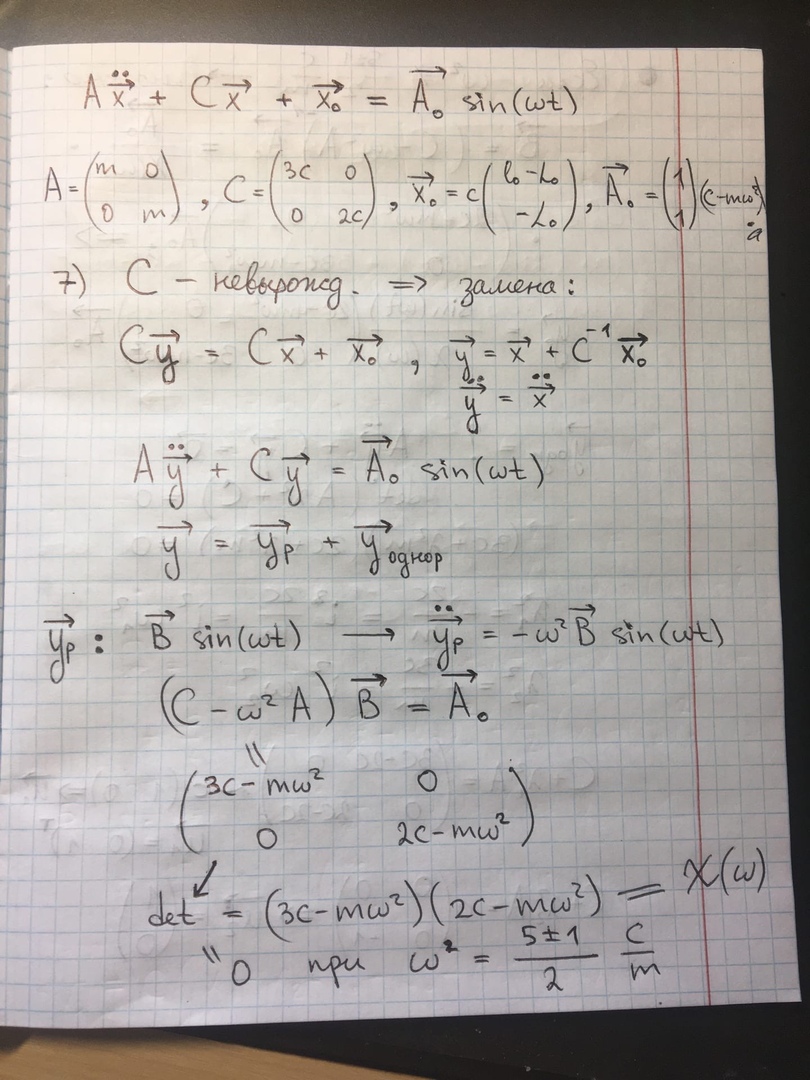 Aẍ⃗ + Cx⃗ + x⃗₀ = A⃗₀ sin(ωt)
A = (m 0; 0 m), C = (3c 0; 0 2c), x⃗₀ = c(l₀ - L₀; -L₀), A⃗₀ = (1; 1)(c-mω²)a
7) C - невырожд. => замена:
Cy⃗ = Cx⃗ + x⃗₀, y⃗ = x⃗ + C⁻¹ x⃗₀
ÿ⃗ = ẍ⃗
Aÿ⃗ + Cy⃗ = A⃗₀ sin(ωt)
y⃗ = y⃗p + y⃗однор
y⃗p : B⃗ sin(ωt) → ÿ⃗p = -ω²B⃗ sin(ωt)
(C - ω²A) B⃗ = A⃗₀
=
(3c - mω² 0; 0 2c - mω²)
det = (3c - mω²)(2c - mω²) = χ(ω)
= 0 при ω² = 5±1/2 c/m